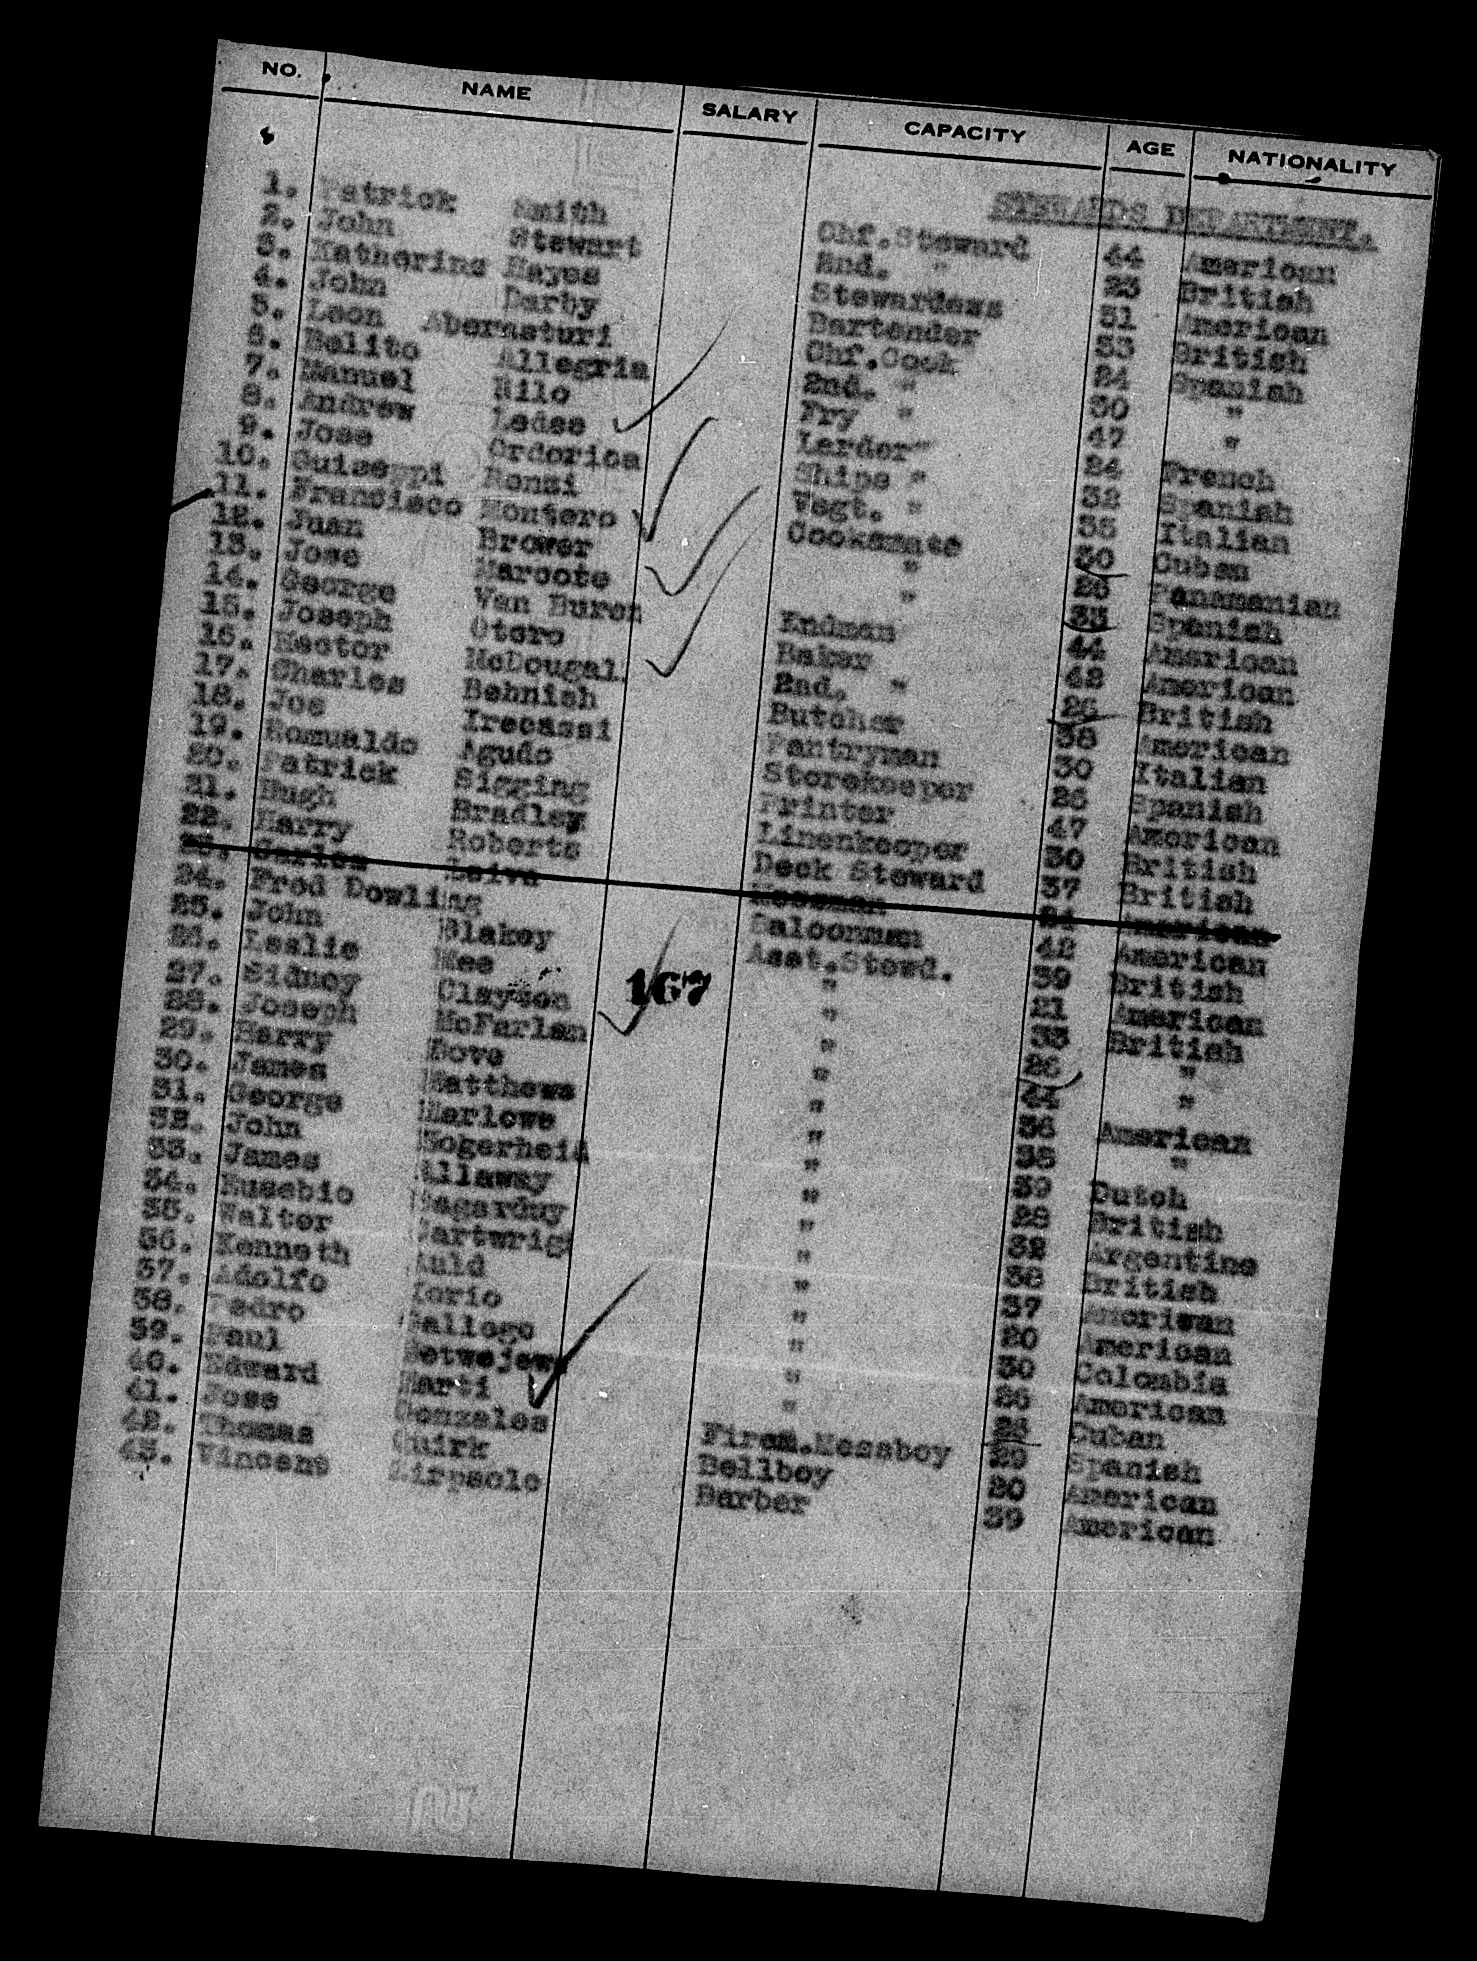 NO. NAME SALARY CAPACITY AGE NATIONALITY
STEWARDS DEPARTMENT.
1. Patrick Smith Chf.Steward 44 American
2. John Stewart 2nd. " 23 British
3. Katherine Hayes Stewardess 51 American
4. John Darby Bartender 33 British
5. Leon Abernsturi Chf.Cook 24 Spanish
6. Belito Allegria 2nd. " 30 "
7. Manuel Rilo Fry " 47 "
8. Andrew Ledee Larder" 24 French
9. Jose Ordorica Ships " 32 Spanish
10. Guiseppi Ronzi Vegt. " 35 Italian
11. Francisco Montero Cooksmate 30 Cuban
12. Juan Brower " 25 Panamanian
13. Jose Marcote " 33 Spanish
14. George Van Buren Endman 44 American
15. Joseph Otero Baker 42 American
16. Hector McDougal. 2nd. " 26 British
17. Charles Behnish Butcher 38 American
18. Jos Irecassi Pantryman 30 Italian
19. Romualdo Agudo Storekeeper 25 Spanish
20. Patrick Sigging Printer 47 American
21. Hugh Bradley Linenkeeper 30 British
22. Harry Roberts Deck Steward 37 British
23. Carlos Leiva Messman 24 American
24. Fred Dowling Saloonman 42 American
25. John Blakey Asst.Stewd. 39 British
26. Leslie Mee " 21 American
27. Sidney Clayson 167 " 33 British
28. Joseph McFarlan " 26 "
29. Harry Dove " 44 "
30. James Matthews " 36 American
31. George Marlowe " 35 "
32. John Hogerheid " 39 Dutch
33. James Allaway " 28 British
34. Eusebio Sagarduy " 32 Argentine
35. Walter Cartwrig " 38 British
36. Kenneth Auld " 37 American
37. Adolfo " 20 American
38. Pedro Gallego " 30 Colombia
39. Paul " 25 American
40. Edward Marti " 24 Cuban
41. Jose Gonzales Firem.Messboy 29 Spanish
42. Thomas Quirk Bellboy 20 American
43. Vincent Barber 39 American